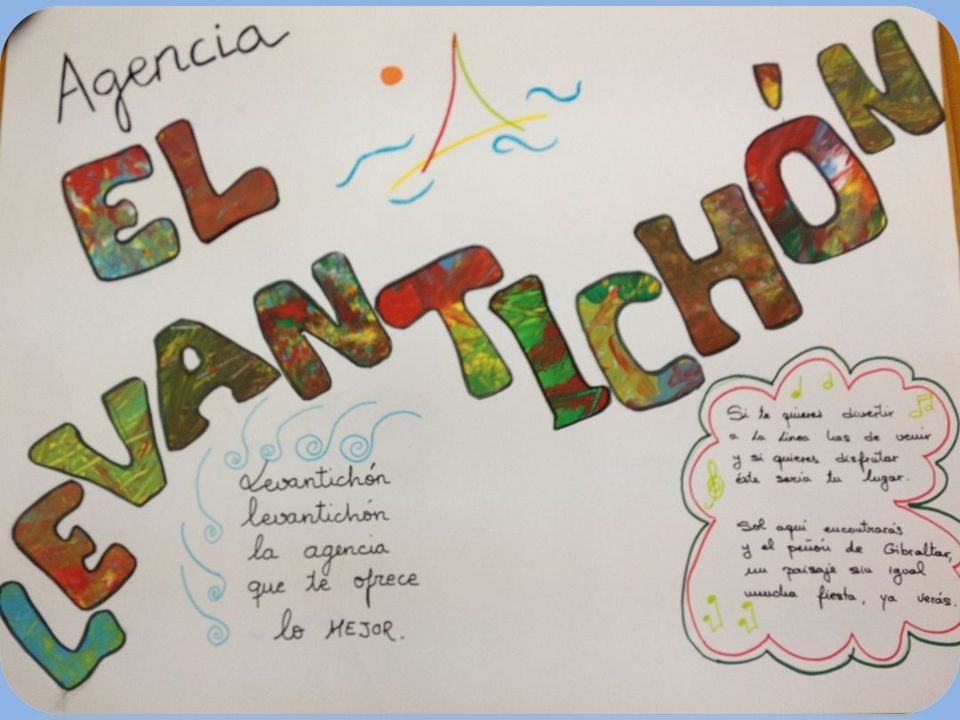 Agencia
EL
LEVANTICHÓN
Levantichón
levantichón
la agencia
que te ofrece
lo MEJOR.
Si te quieres divertir
a La Línea has de venir
y si quieres disfrutar
éste sería tu lugar.
Sol aquí encontrarás
y el peñón de Gibraltar,
un paisaje sin igual
mucha fiesta, ya verás.